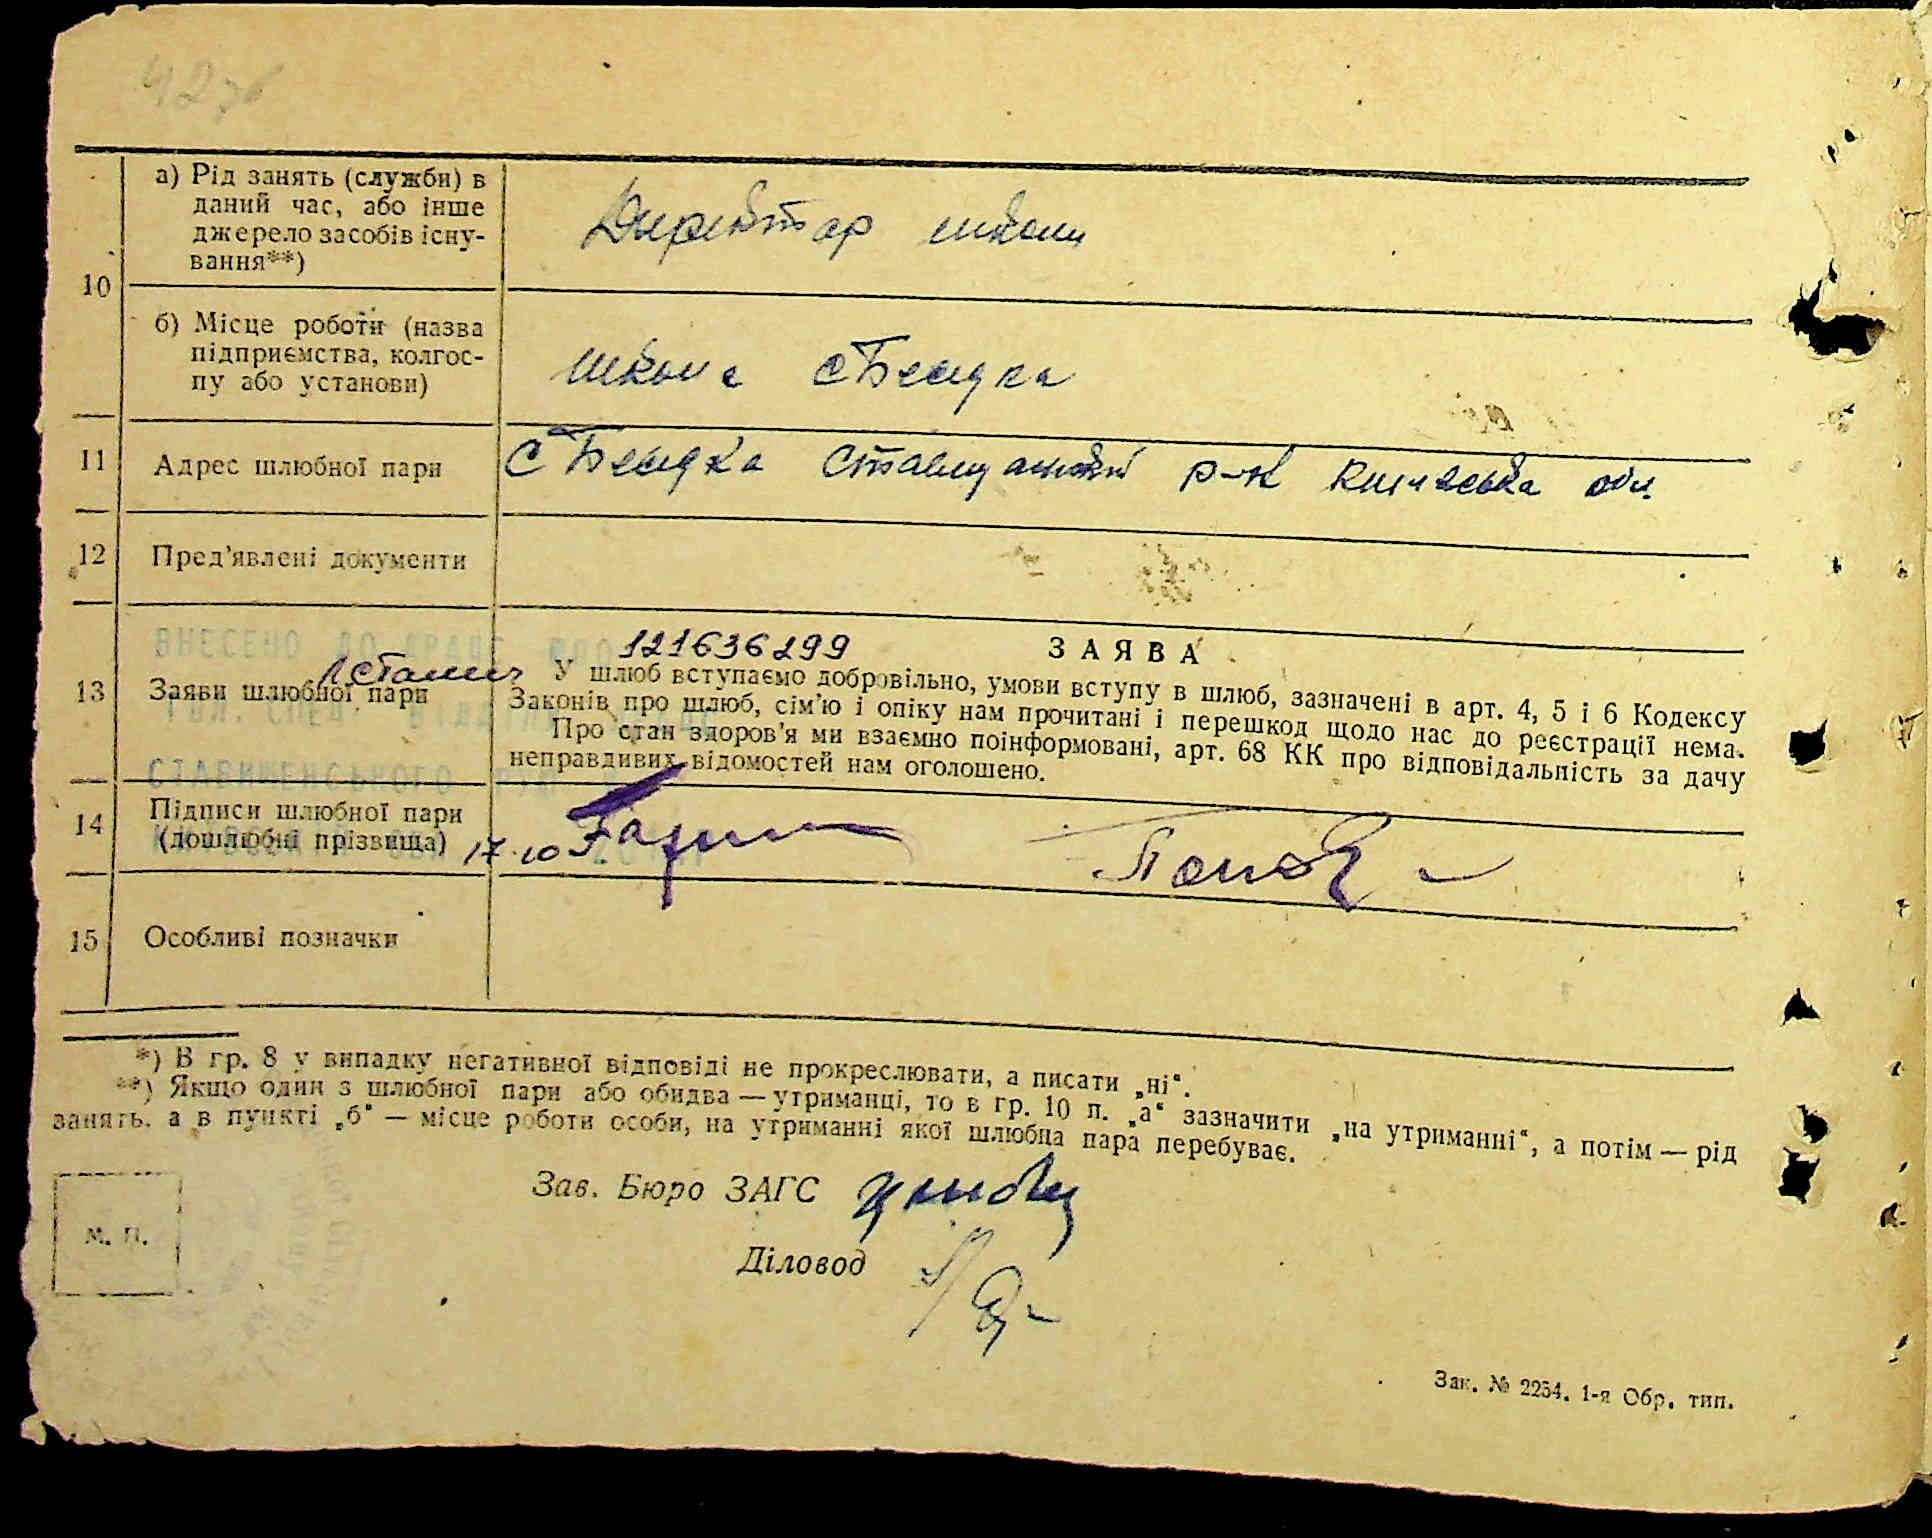 42 зв
а) Рід занять (служби) в
даний час, або інше
джерело засобів існу-
вання**)
Директор школи
10
б) Місце роботи (назва
підприємства, колгос-
пу або установи)
школа с Бесідка
11
Адрес шлюбної пари
с Бесідка Ставищанський р-н Київська обл.
12
Пред'явлені документи
ВНЕСЕНО ДО ДРАЦС
121636299
ЗАЯВА
13
Заяви шлюбної пари
У шлюб вступаємо добровільно, умови вступу в шлюб, зазначені в арт. 4, 5 і 6 Кодексу
Законів про шлюб, сім'ю і опіку нам прочитані і перешкод щодо нас до реєстрації нема.
Про стан здоров'я ми взаємно поінформовані, арт. 68 КК про відповідальність за дачу
неправдивих відомостей нам оголошено.
СТАВИЩЕНСЬКОГО
14
Підписи шлюбної пари
(дошлюбні прізвища)
17.10
15
Особливі позначки
*) В гр. 8 у випадку негативної відповіді не прокреслювати, а писати „ні“.
**) Якщо один з шлюбної пари або обидва — утриманці, то в гр. 10 п. „а“ зазначити „на утриманні“, а потім — рід
занять, а в пункті „б“ — місце роботи особи, на утриманні якої шлюбна пара перебуває.
Зав. Бюро ЗАГС
М. П.
Діловод
Зак. № 2254. 1-я Обр. тип.